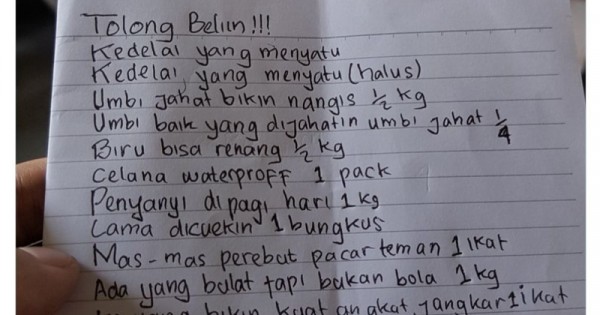 Tolong Beliin!!!
Kedelai yang menyatu
Kedelai yang menyatu (halus)
Umbi jahat bikin nangis 1/2 kg
Umbi baik yang dijahatin umbi jahat 1/4
Biru bisa renang 1/2 kg
Celana waterproff 1 pack
Penyanyi di pagi hari 1 kg
Lama dicuekin 1 bungkus
Mas-mas perebut pacar teman 1 ikat
Ada yang bulat tapi bukan bola 1 kg
yang bikin kuat angkat jangkar 1 ikat